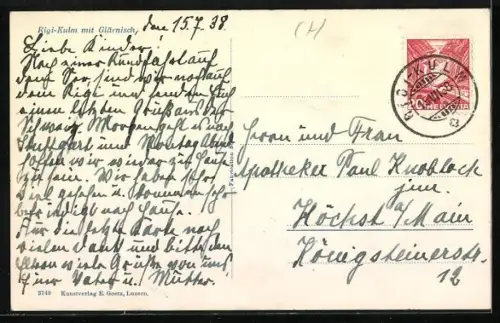 Rigi-Kulm mit Glärnisch
den 15.7.38.
Liebe Kinder!
Nach einer Rundfahrt auf
dem See sind wir nun auf
dem Rigi und senden Euch
einen letzten Gruß aus der
Schweiz. Morgen geht es nach
Stuttgart und
hoffen wir wieder zu Hause
zu sein. Wir haben sehr
viel gesehen u. kommen sehr
befriedigt nach Hause.
Für die letzte Karte noch
vielen Dank und
viele Grüße von uns
Euer Vater u. Mutter.
3149 Kunstverlag E. Goetz, Luzern.
(4)
RIGI-KULM
HELVETIA
Herrn und Frau
Apotheker Paul Knobloch
jun.
Höchst a/Main
Königsteinerstr.
12